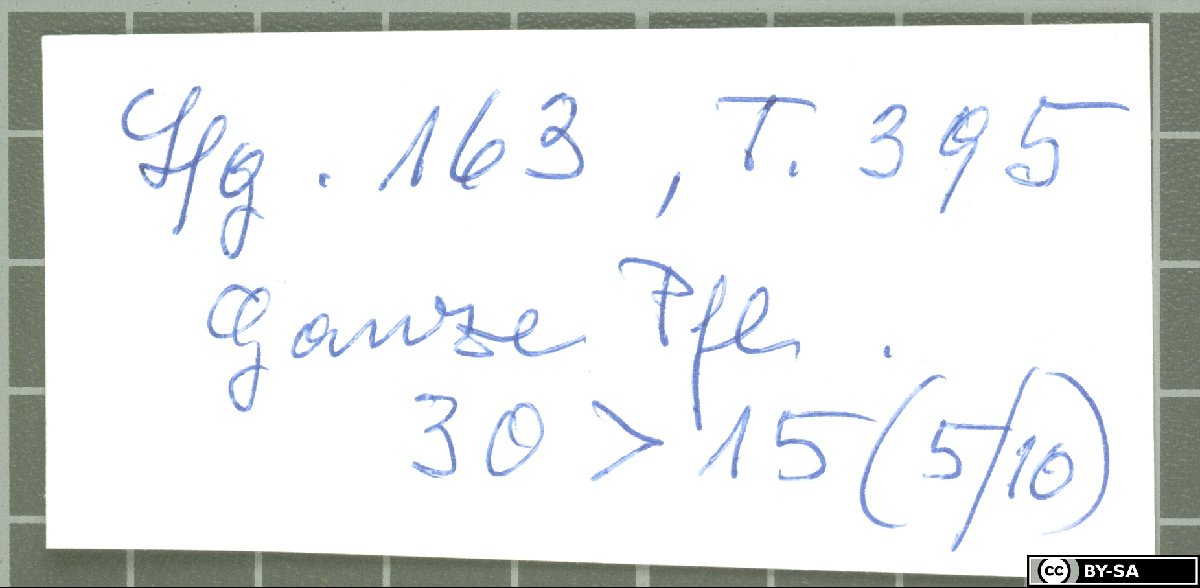 Hg. 163, T. 395
Ganze Pfl.
30 > 15 (5/10)
cc BY-SA